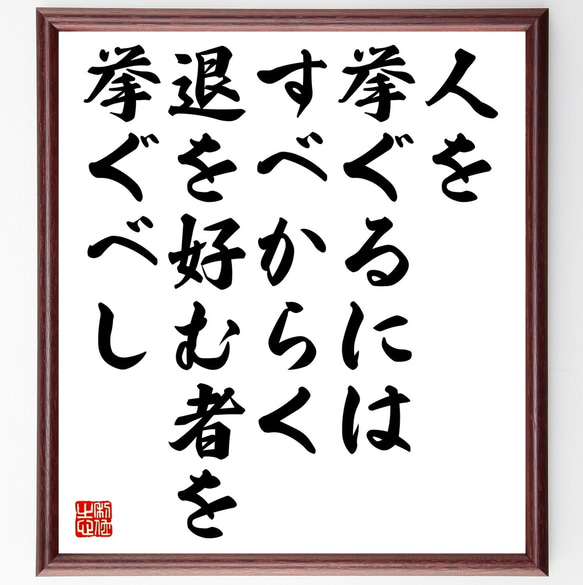 人を
挙ぐるには
すべからく
退を好む者を
挙ぐべし